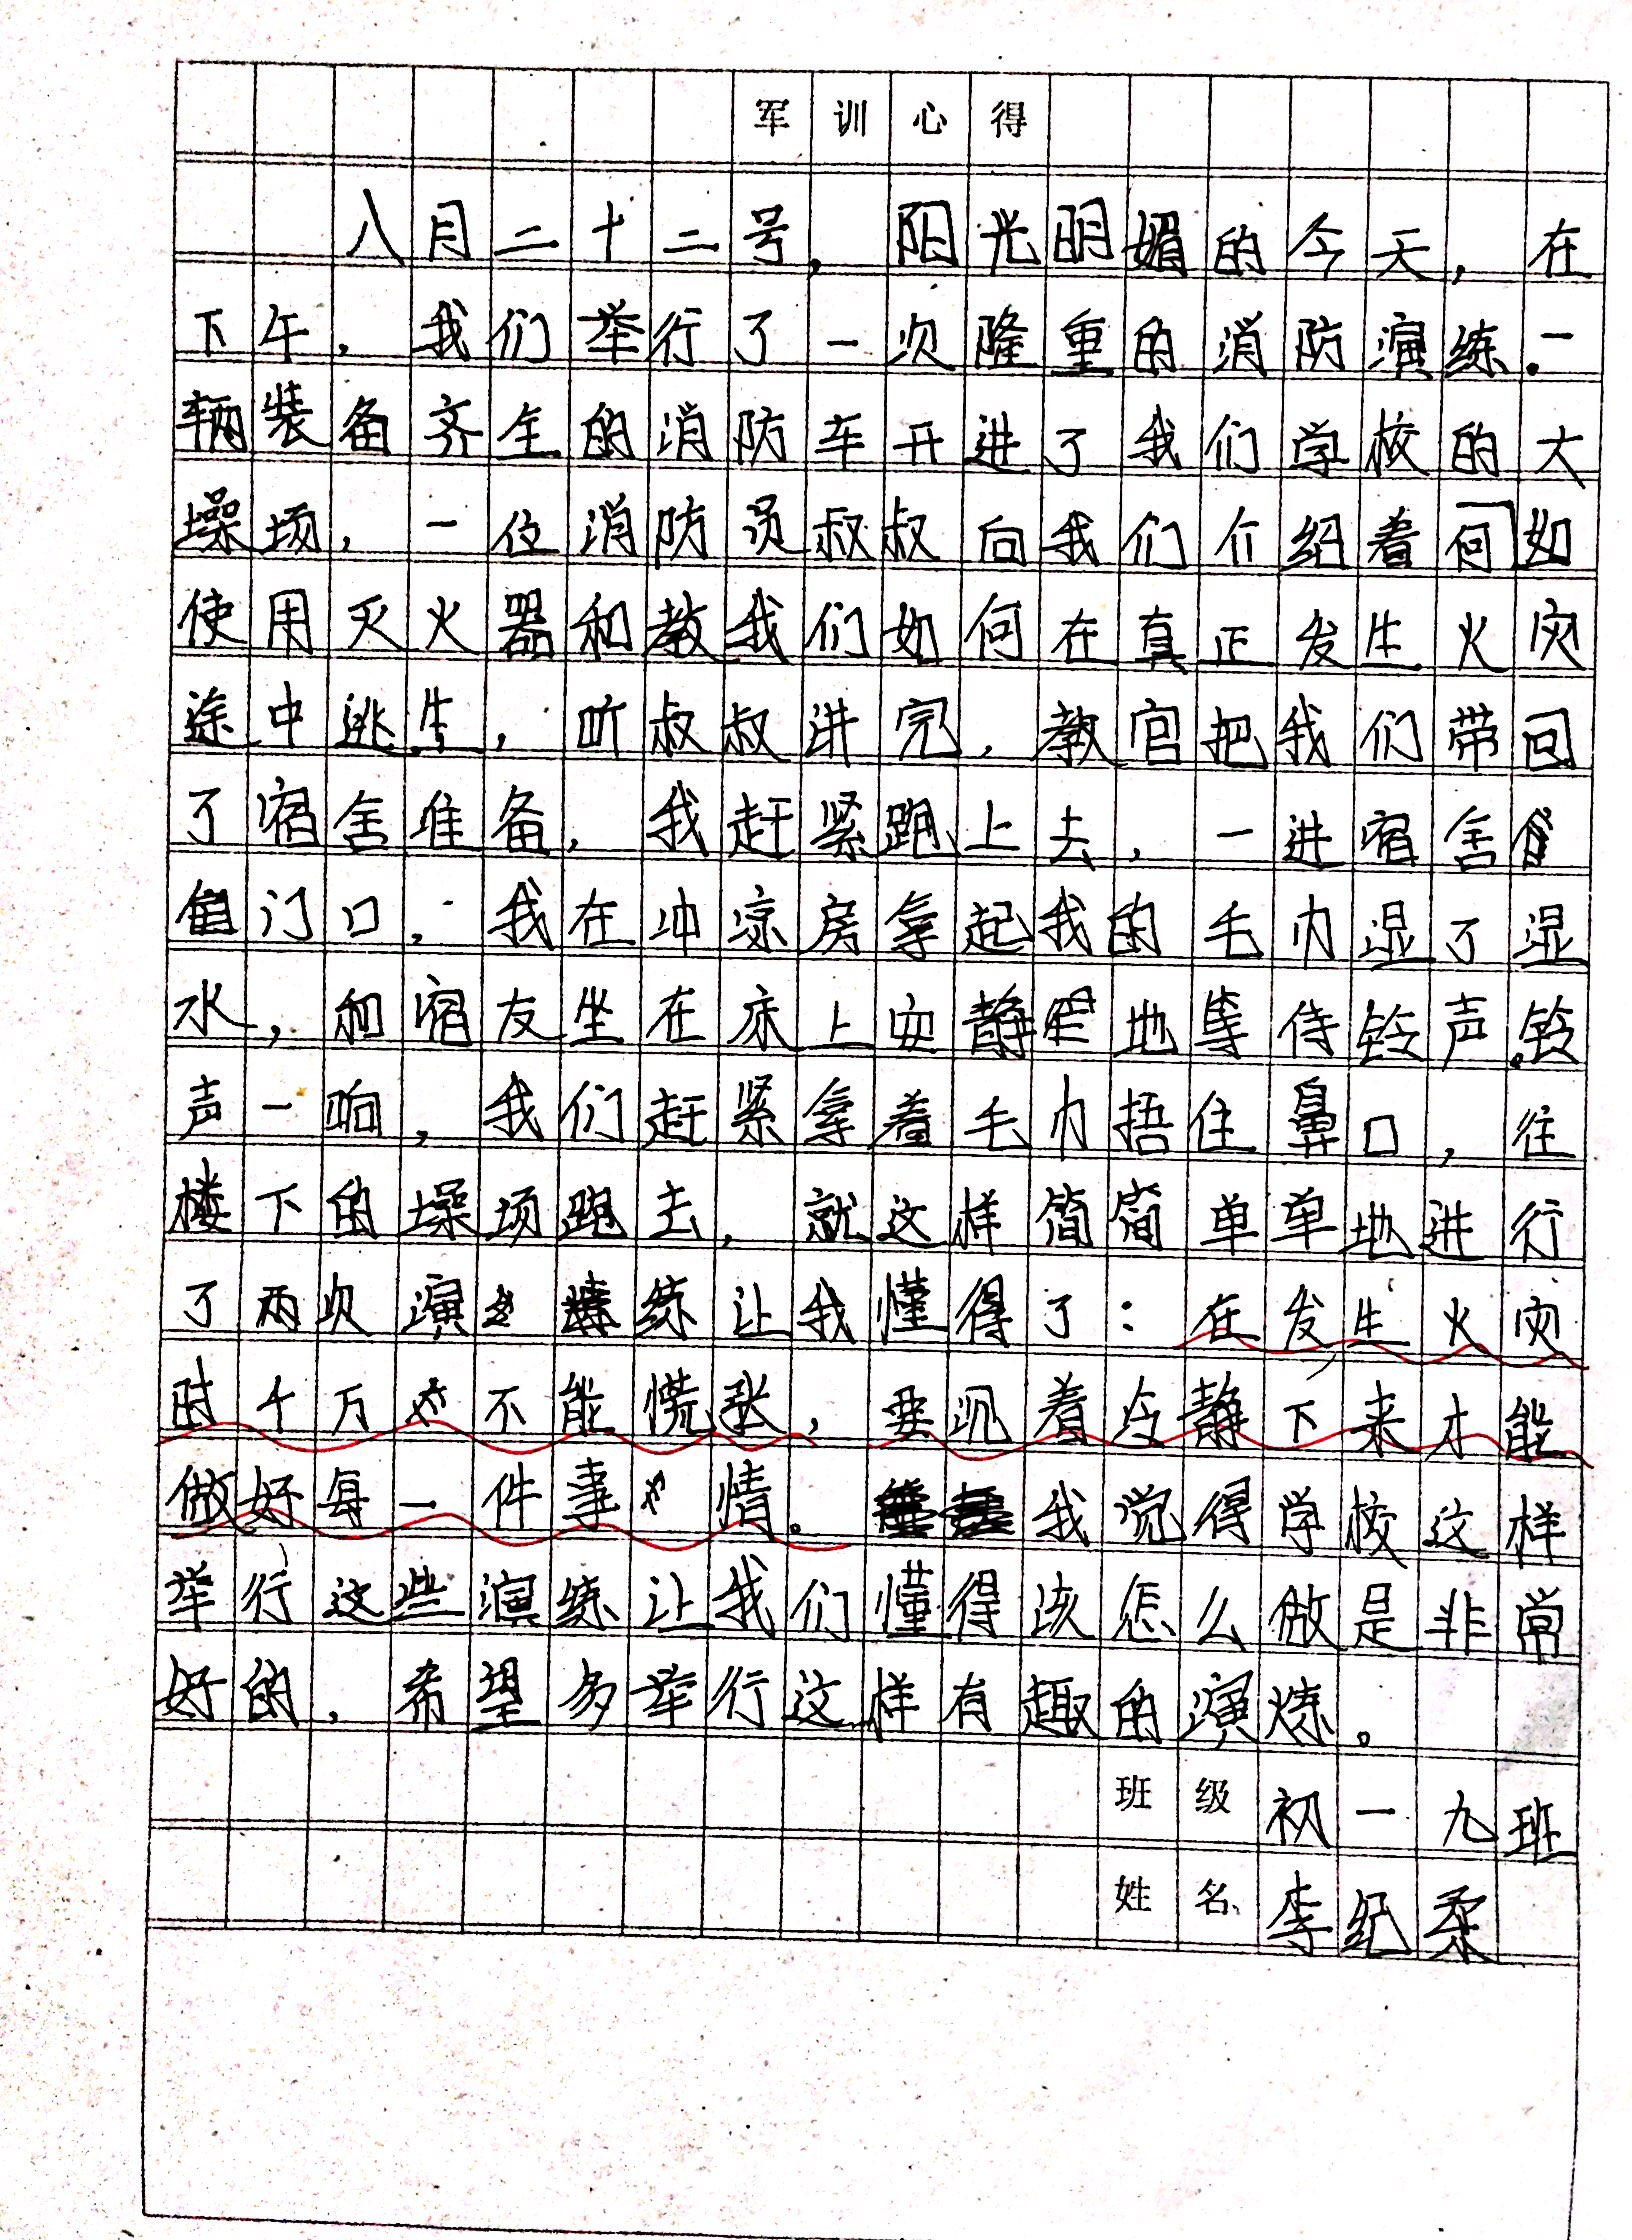 军训心得
八月二十二号，阳光明媚的今天，在
下午，我们举行了一次隆重的消防演练.一
辆装备齐全的消防车开进了我们学校的大
操场，一位消防员叔叔向我们介绍着何如
使用灭火器和教我们如何在真正发生火灾
途中逃生，听叔叔讲完，教官把我们带回
了宿舍准备，我赶紧跑上去，一进宿舍
门口，我在冲凉房拿起我的毛巾湿了湿
水，和宿友坐在床上安静地等待铃声。铃
声一响，我们赶紧拿着毛巾捂住鼻口，往
楼下的操场跑去，就这样简简单单地进行
了两次演练让我懂得了：在发生火灾
时千万不能慌张，要沉着冷静下来才能
做好每一件事情。我觉得学校这样
举行这些演练让我们懂得该怎么做是非常
好的，希望多举行这样有趣的演炼。
班级 初一九班
姓名 李纪柔